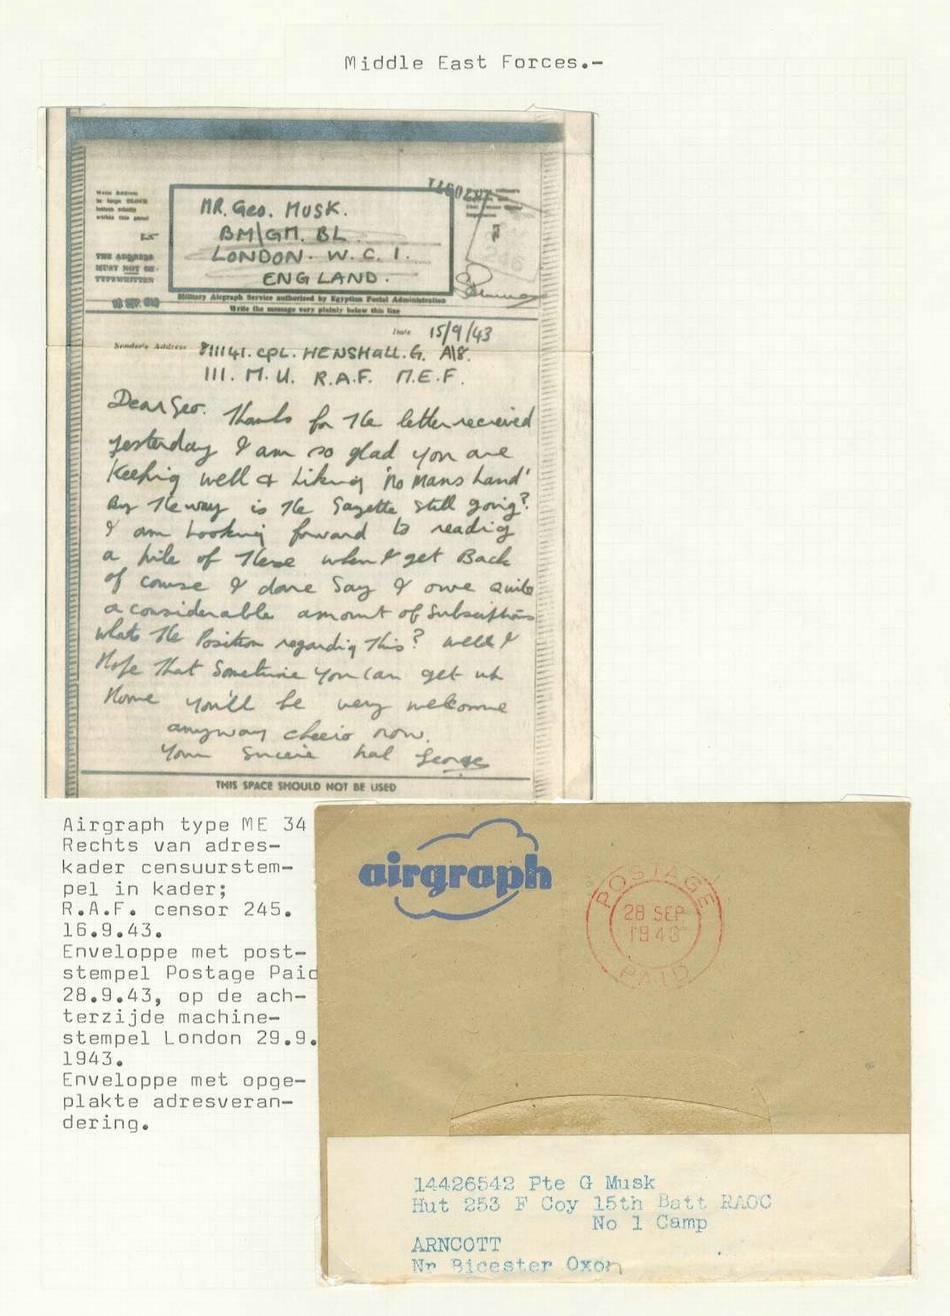 Middle East Forces.-
Name Address
in large BLOCK
letters wholly
within this panel
THE ADDRESS
MUST NOT BE
TYPEWRITTEN
MR. Geo. MUSK.
BM/GM. BL
LONDON. W.C.1.
ENGLAND.
Military Airgraph Service authorized by Egyptian Postal Administration
Write the message very plainly below this line
Date 15/9/43
Sender's Address 811141. CPL. HENSHALL. G. A/8.
111. M.U. R.A.F. M.E.F.
Dear Geo. Thanks for the letter recieved
yesterday I am so glad you are
Keeping well & Liking 'No Mans Land'
By the way is the Gazette still going?
I am Looking forward to reading
a pile of these when I get Back
of course I dare Say I owe quite
a considerable amount of Subscriptions
whats the Position regarding this? well I
Hope that Sometime You Can get
Home you'll be very welcome
anyway cheerio now.
Your Sincere Pal George
THIS SPACE SHOULD NOT BE USED
Airgraph type ME 34
Rechts van adres-
kader censuurstem-
pel in kader;
R.A.F. censor 245.
16.9.43.
Enveloppe met post-
stempel Postage Paid
28.9.43, op de ach-
terzijde machine-
stempel London 29.9.
1943.
Enveloppe met opge-
plakte adresveran-
dering.
airgraph
POSTAGE
28 SEP
1943
PAID
14426542 Pte G Musk
Hut 253 F Coy 15th Batt RAOC
No 1 Camp
ARNCOTT
Nr Bicester Oxon